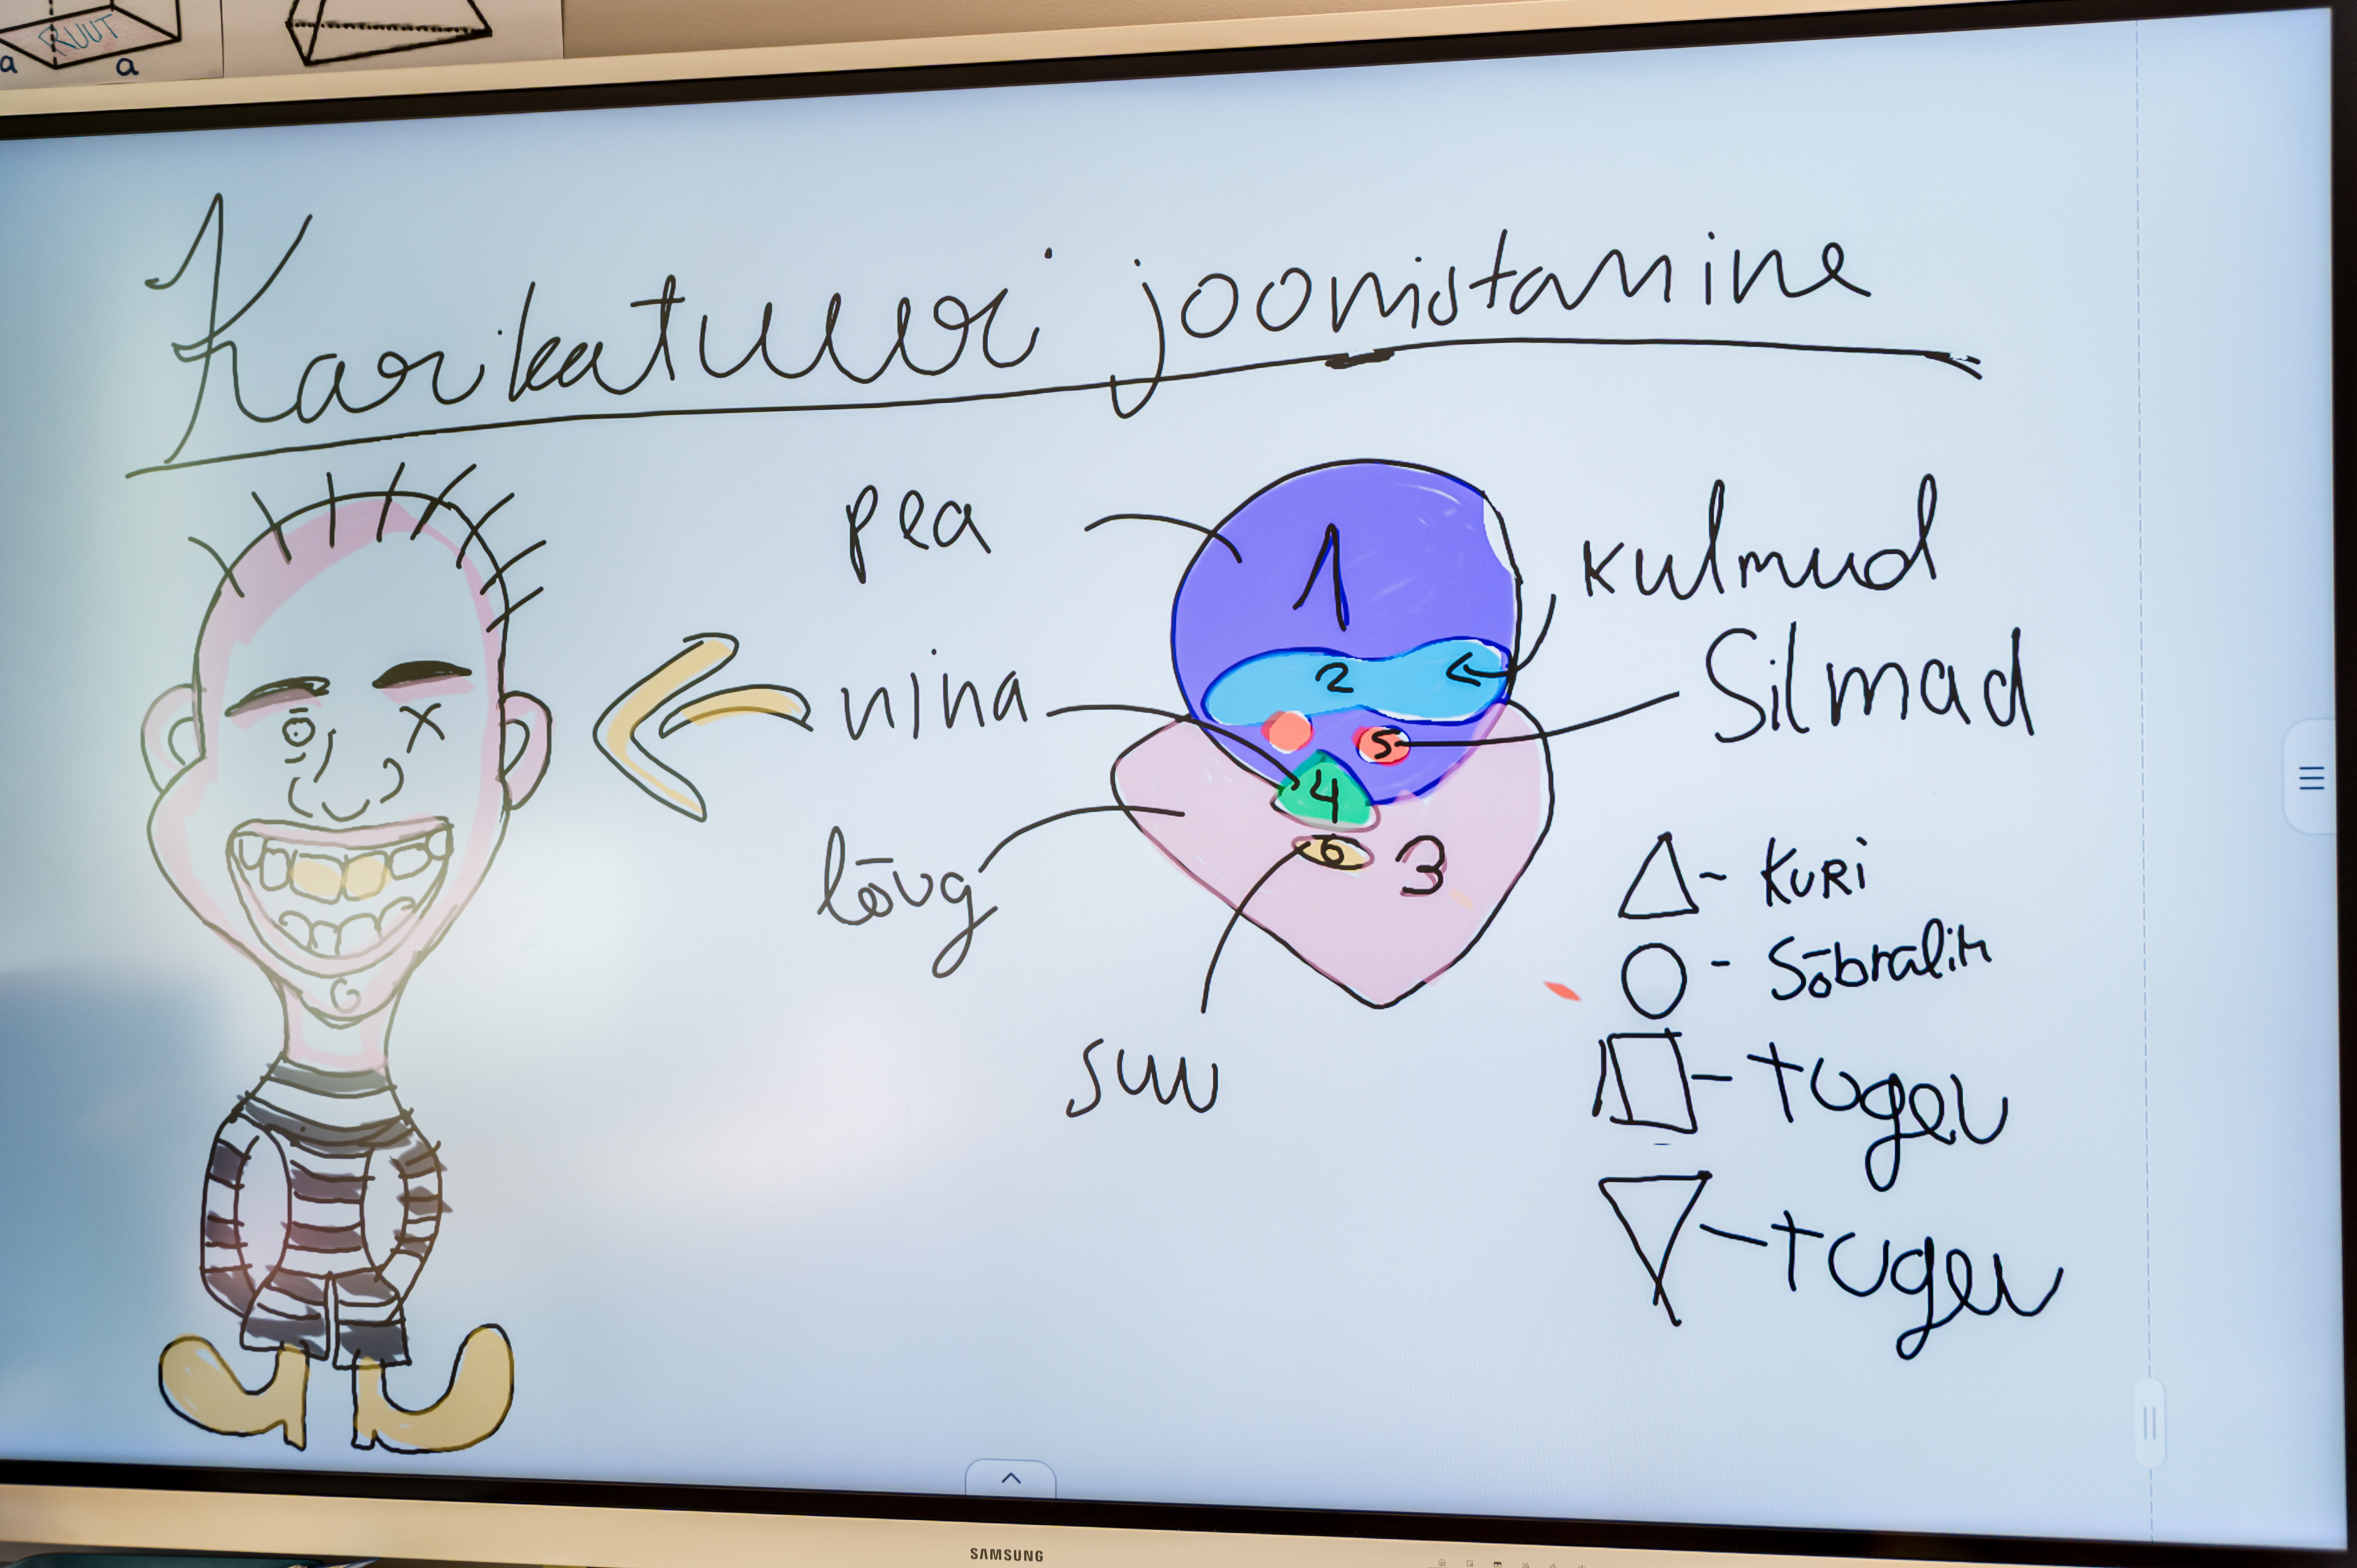 RUUT
a a
Karikatuuri joonistamine
pea
1
kulmud
2
Silmad
nina
5
4
lõug
6 3
suu
- KURI
- Sõbralik
- tugev
- tugev
SAMSUNG